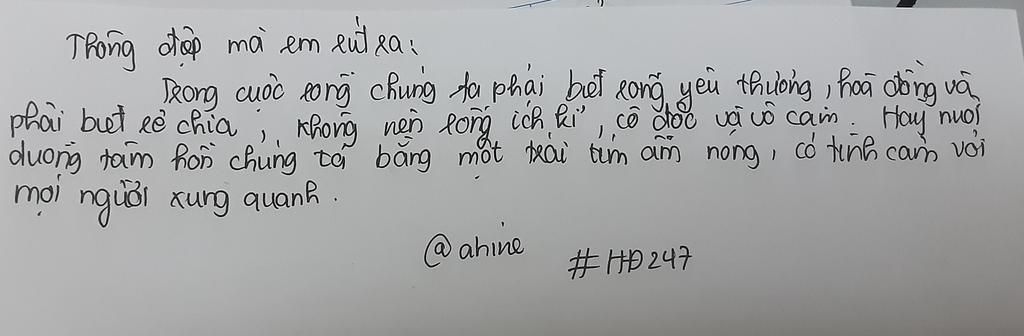 Thông điệp mà em rút ra:
Trong cuộc sống chúng ta phải biết sống yêu thương, hoà đồng và
phải biết sẻ chia, không nên sống ích kỉ, cô độc và vô cảm. Hãy nuôi
dưỡng tâm hồn chúng ta bằng một trái tim ấm nóng, có tình cảm với
mọi người xung quanh.
@ahine #HĐ247